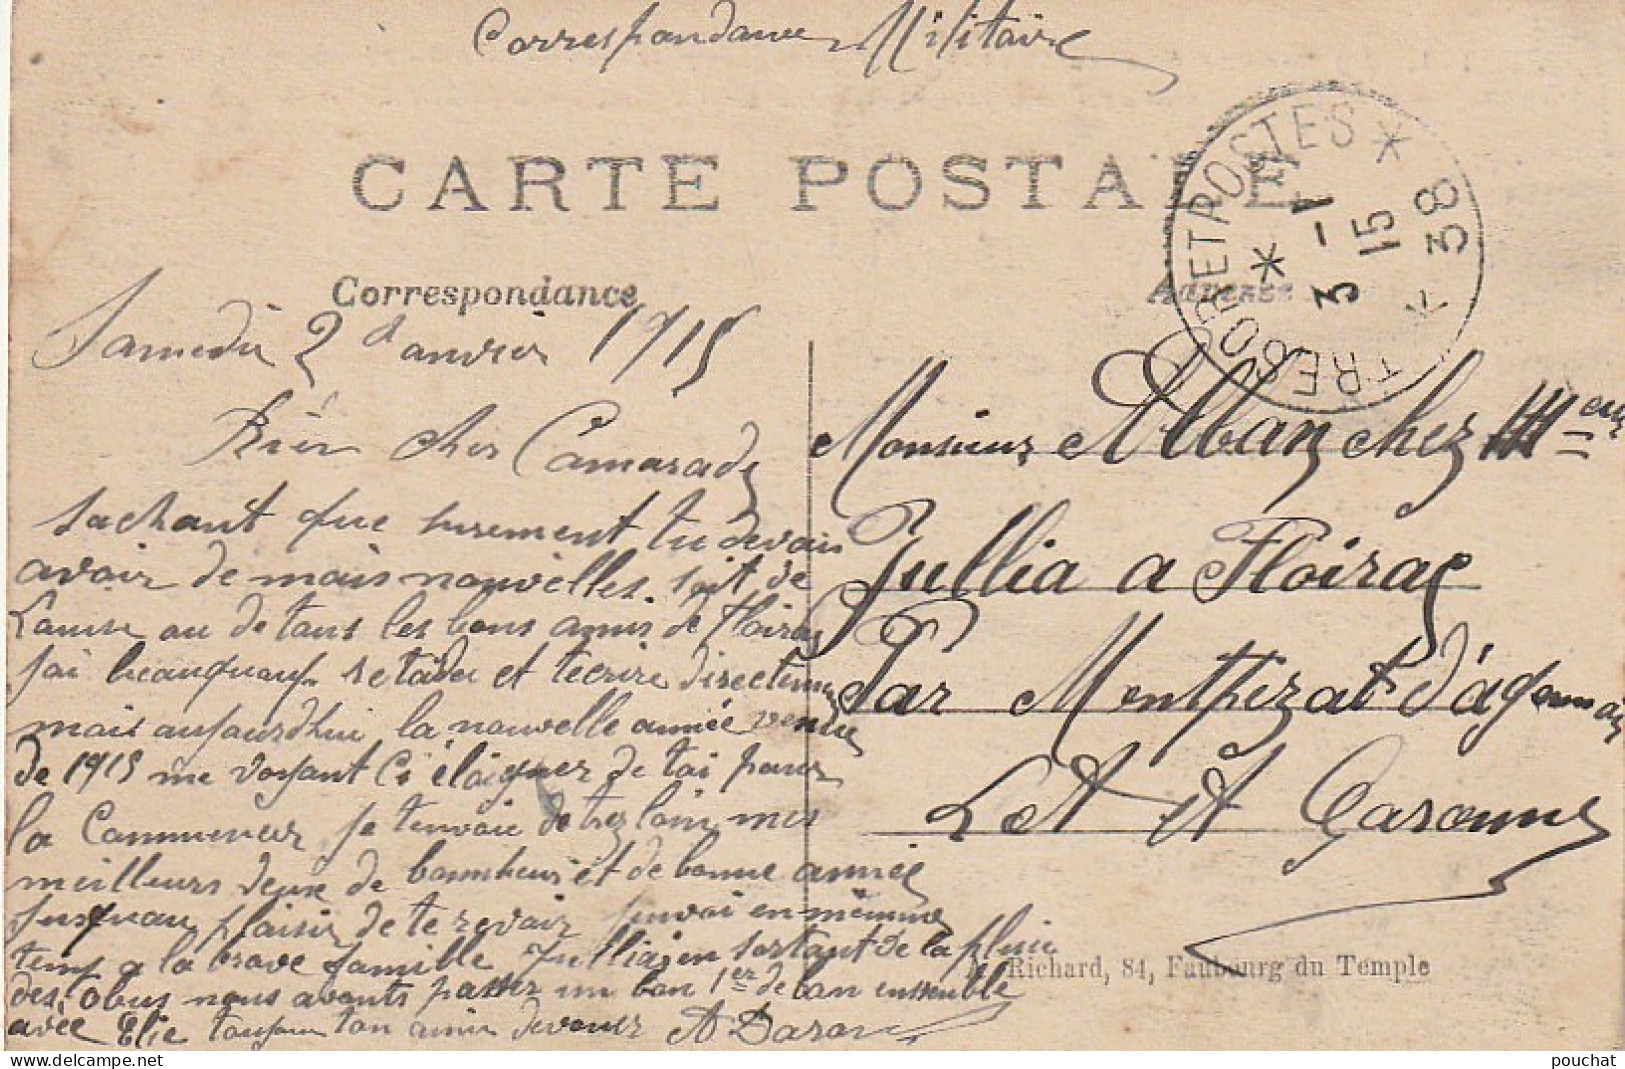 Correspondance Militaire
CARTE POSTALE
TRESOR ET POSTES
3 - 1
15
38
Correspondance
Adresse
Samedi 2 Janvier 1915
Bien cher Camarade
Sachant que surement tu devais
avoir de mais nouvelles soit de
Laure ou de tous les bons amis de Floirac
jai beaucoup retader et tecrire directemen
mais aujourdhui la nouvelle année venue
de 1915 me voyant ci éloigner de toi pour
la Commencer je tenvoie de trez loin mes
meilleurs veux de bonnheur et de bonne année
jusquau plaisir de te revoir jenvoi en mêmme
temp a la brave famille Jullia en sortant de la pluie
des obus nous avonts passer un bon 1er de lan enssenble
avec Elie toujour ton amie devouer A Daron
Monsieur Alban chez Meur
Jullia a Floirac
Par Montpezat d'agennais
Lot et Garonne
Richard, 84, Faubourg du Temple
pouchat